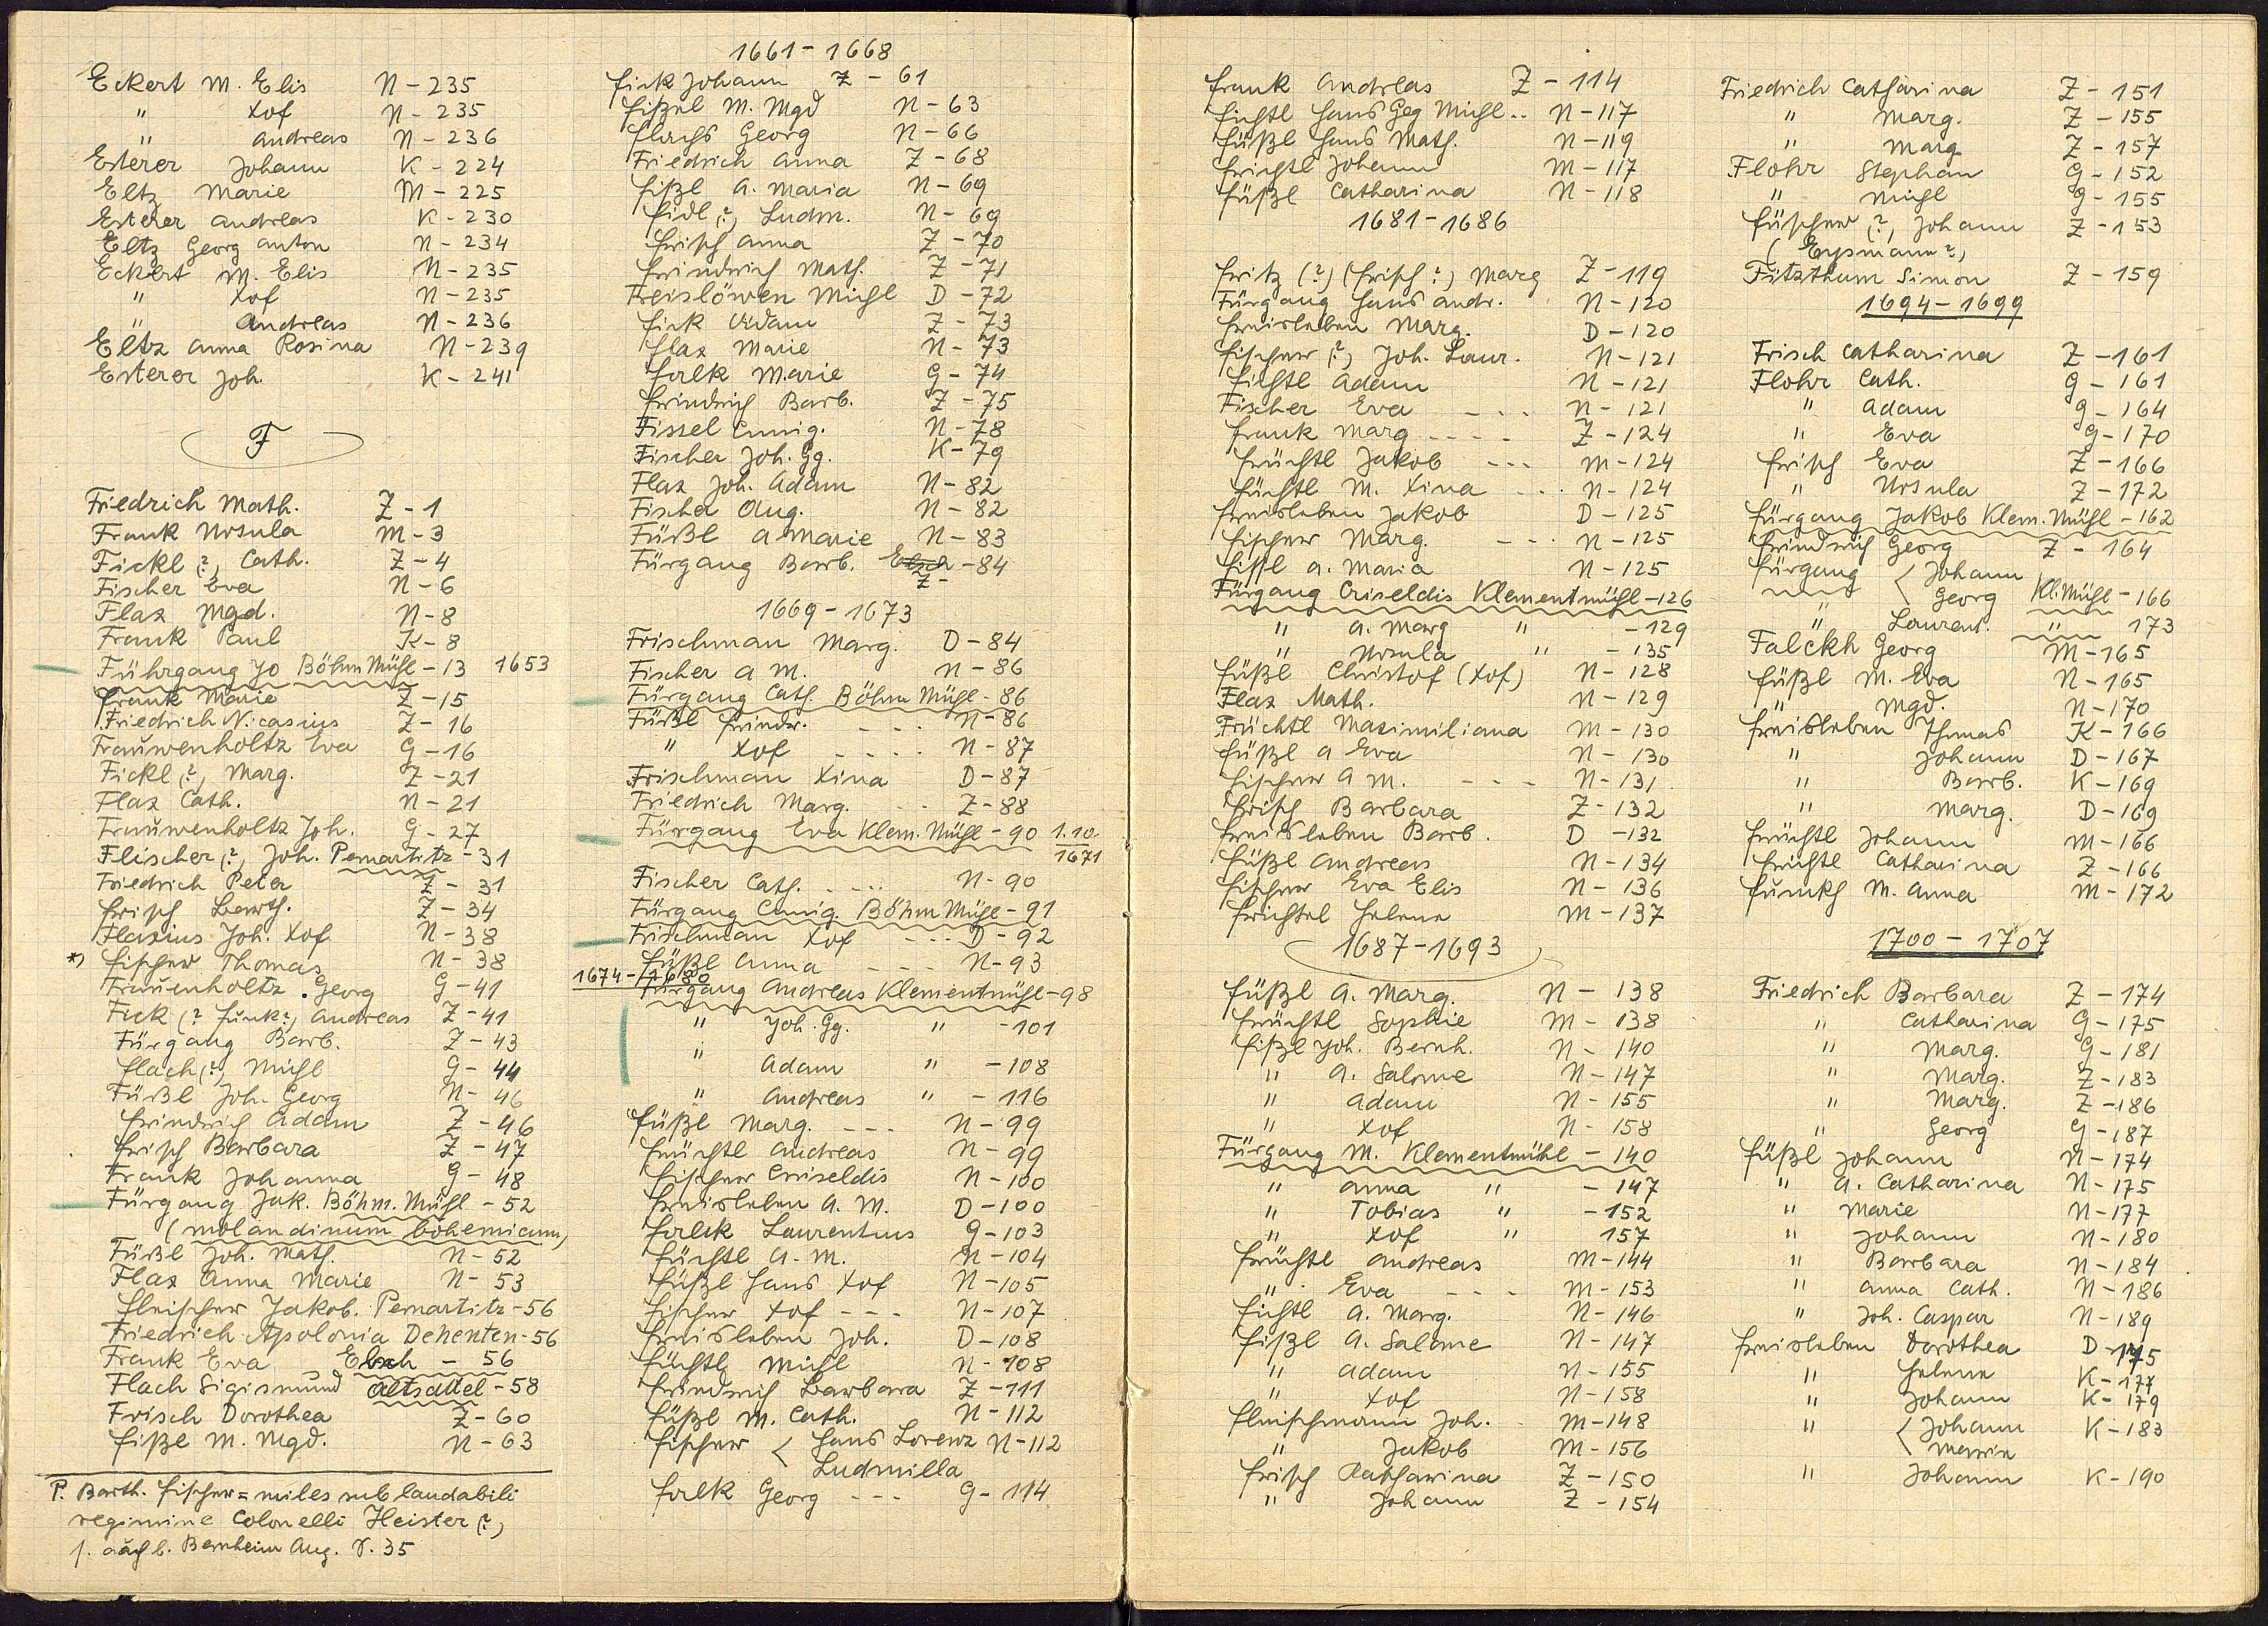 Eckert M. Elis N - 235
" Xof N - 235
" Andreas N - 236
Esterer Johann K - 224
Eltz Marie M - 225
Esterer Andreas K - 230
Eltz Georg Anton N - 234
Eckert M. Elis N - 235
" Xof N - 235
" Andreas N - 236
Eltz Anna Rosina N - 239
Esterer Joh. K - 241
F
Friedrich Math. Z - 1
Frank Ursula M - 3
Fickl (?) Cath. Z - 4
Fischer Eva N - 6
Flax Mgd. N - 8
Frank Paul K - 8
Führgang Jo Böhm Mühl - 13 1653
Frank Marie Z - 15
Friedrich Nicasius Z - 16
Frauwenholtz Eva G - 16
Fickl (?) Marg. Z - 21
Flax Cath. N - 21
Frauwenholtz Joh. G - 27
Flischer (?) Joh. Pemartitz - 31
Friedrich Peter Z - 31
Frisch Barth. Z - 34
Flaxius Joh. Xof N - 38
*) Fischer Thomas N - 38
Frauenholtz Georg G - 41
Fick (? Funk?) Andreas Z - 41
Fürgang Barb. Z - 43
Flach (?) Michl G - 44
Füßl Joh. Georg N - 46
Friedrich Adam Z - 46
Frisch Barbara Z - 47
Frank Johanna G - 48
Fürgang Jak. Böhm. Mühl - 52
(molandinum bohemicum)
Füßl Joh. Math. N - 52
Flax Anna Marie N - 53
Fleischer Jakob. Pemartitz - 56
Friedrich Apolonia Dehenten - 56
Frank Eva Elsch - 56
Flach Sigismund Altsattel - 58
Frisch Dorothea Z - 60
Fißl M. Mgd. N - 63
P. Barth. Fischer = miles sub laudabili
regimine Colonelli Heister (?)
f. auch b. Bernheim Aug. S. 35
1661 - 1668
Fick Johann Z - 61
Fißel M. Mgd N - 63
Flachs Georg N - 66
Friedrich Anna Z - 68
Fißl A. Maria N - 69
Fidl (?) Ludm. N - 69
Frisch Anna Z - 70
Friedrich Math. Z - 71
Freislöwen Michl D - 72
Fick Adam Z - 73
Flax Marie N - 73
Falk Marie G - 74
Friedrich Barb. Z - 75
Fissel Cunig. N - 78
Fischer Joh. Gg. K - 79
Flax Joh. Adam N - 82
Fischer Aug. N - 82
Füßl A Marie N - 83
Fürgang Barb. Elsch - 84
Z -
1669 - 1673
Frischman Marg. D - 84
Fischer A M. N - 86
Fürgang Cath. Böhm Mühl - 86
Füßl Friedr. N - 86
" Xof N - 87
Frischman Xina D - 87
Friedrich Marg. Z - 88
Fürgang Eva Klem. Mühl - 90 1.10. 1671
Fischer Cath. N - 90
Fürgang Cunig. Böhm Mühl - 91
Frischman Xof D - 92
Füßl Anna N - 93
1674 - 1680
Fürgang Andreas Klementmühl - 98
" Joh. Gg. " - 101
" Adam " - 108
" Andreas " - 116
Füßl Marg. N - 99
Früchtl Andreas N - 99
Fischer Criseldis N - 100
Freisleben A. M. D - 100
Falck Laurentius G - 103
Füchtl A. M. N - 104
Füßl Hans Xof N - 105
Fischer Xof N - 107
Freisleben Joh. D - 108
Füchtl Michl N - 108
Friedrich Barbara Z - 111
Füßl M. Cath. N - 112
Fischer < Hans Lorenz N - 112
Ludmilla
Falk Georg G - 114
Frank Andreas Z - 114
Füchtl Hans Geg Michl .. N - 117
Füßl Hans Math. N - 119
Frichtl Johann M - 117
Füßl Catharina N - 118
1681 - 1686
Fritz (?) (Frisch?) Marg Z - 119
Fürgang Hans Andr. N - 120
Freisleben Marg. D - 120
Fischer (?) Joh. Laur. N - 121
Fichtl Adam N - 121
Fischer Eva N - 121
Frank Marg Z - 124
Früchtl Jakob M - 124
Füchtl M. Xina N - 124
Freisleben Jakob D - 125
Fischer Marg. N - 125
Fissl A. Maria N - 125
Fürgang Criseldis Klementmühl - 126
" A. Marg " - 129
" Ursula " - 135
Füßl Christof (Xof) N - 128
Flax Math. N - 129
Früchtl Maximiliana M - 130
Füßl A Eva N - 130
Fischer A M. N - 131
Frisch Barbara Z - 132
Freisleben Barb. D - 132
Füßl Andreas N - 134
Fischer Eva Elis N - 136
Frichtel Helene M - 137
1687 - 1693
Füßl A. Marg. N - 138
Früchtl Sophie M - 138
Fißl Joh. Bernh. N - 140
" A. Salome N - 147
" Adam N - 155
" Xof N - 158
Fürgang M. Klementmühl - 140
" Anna " - 147
" Tobias " - 152
" Xof " 157
Früchtl Andreas M - 144
" Eva M - 153
Fichtl A. Marg. N - 146
Fißl A. Salome N - 147
" Adam N - 155
" Xof N - 158
Fleischmann Joh. M - 148
" Jakob M - 156
Frisch Katharina Z - 150
" Johann Z - 154
Friedrich Catharina Z - 151
" Marg. Z - 155
" Marg Z - 157
Flohr Stephan G - 152
" Michl G - 155
Füscher (?) Johann Z - 153
(Eysmann?)
Fitzthum Simon Z - 159
1694 - 1699
Frisch Catharina Z - 161
Flohr Cath. G - 161
" Adam G - 164
" Eva G - 170
Frisch Eva Z - 166
" Ursula Z - 172
Fürgang Jakob Klem. Mühl - 162
Friedrich Georg Z - 164
Fürgang < Johann
Georg Kl. Mühl - 166
" Laurent. " 173
Falckh Georg M - 165
Füßl M. Eva N - 165
" Mgd. N - 170
Freisleben Thomas K - 166
" Johann D - 167
" Barb. K - 169
" Marg. D - 169
Früchtl Johann M - 166
Früchtl Catharina Z - 166
Funkh M. Anna M - 172
1700 - 1707
Friedrich Barbara Z - 174
" Catharina G - 175
" Marg. G - 181
" Marg. Z - 183
" Marg. Z - 186
" Georg G - 187
Füßl Johann N - 174
" A. Catharina N - 175
" Marie N - 177
" Johann N - 180
" Barbara N - 184
" Anna Cath. N - 186
" Joh. Caspar N - 189
Freisleben Dorothea D - 175
" Helena K - 177
" Johann K - 179
" < Johann K - 183
Maria
" Johann K - 190